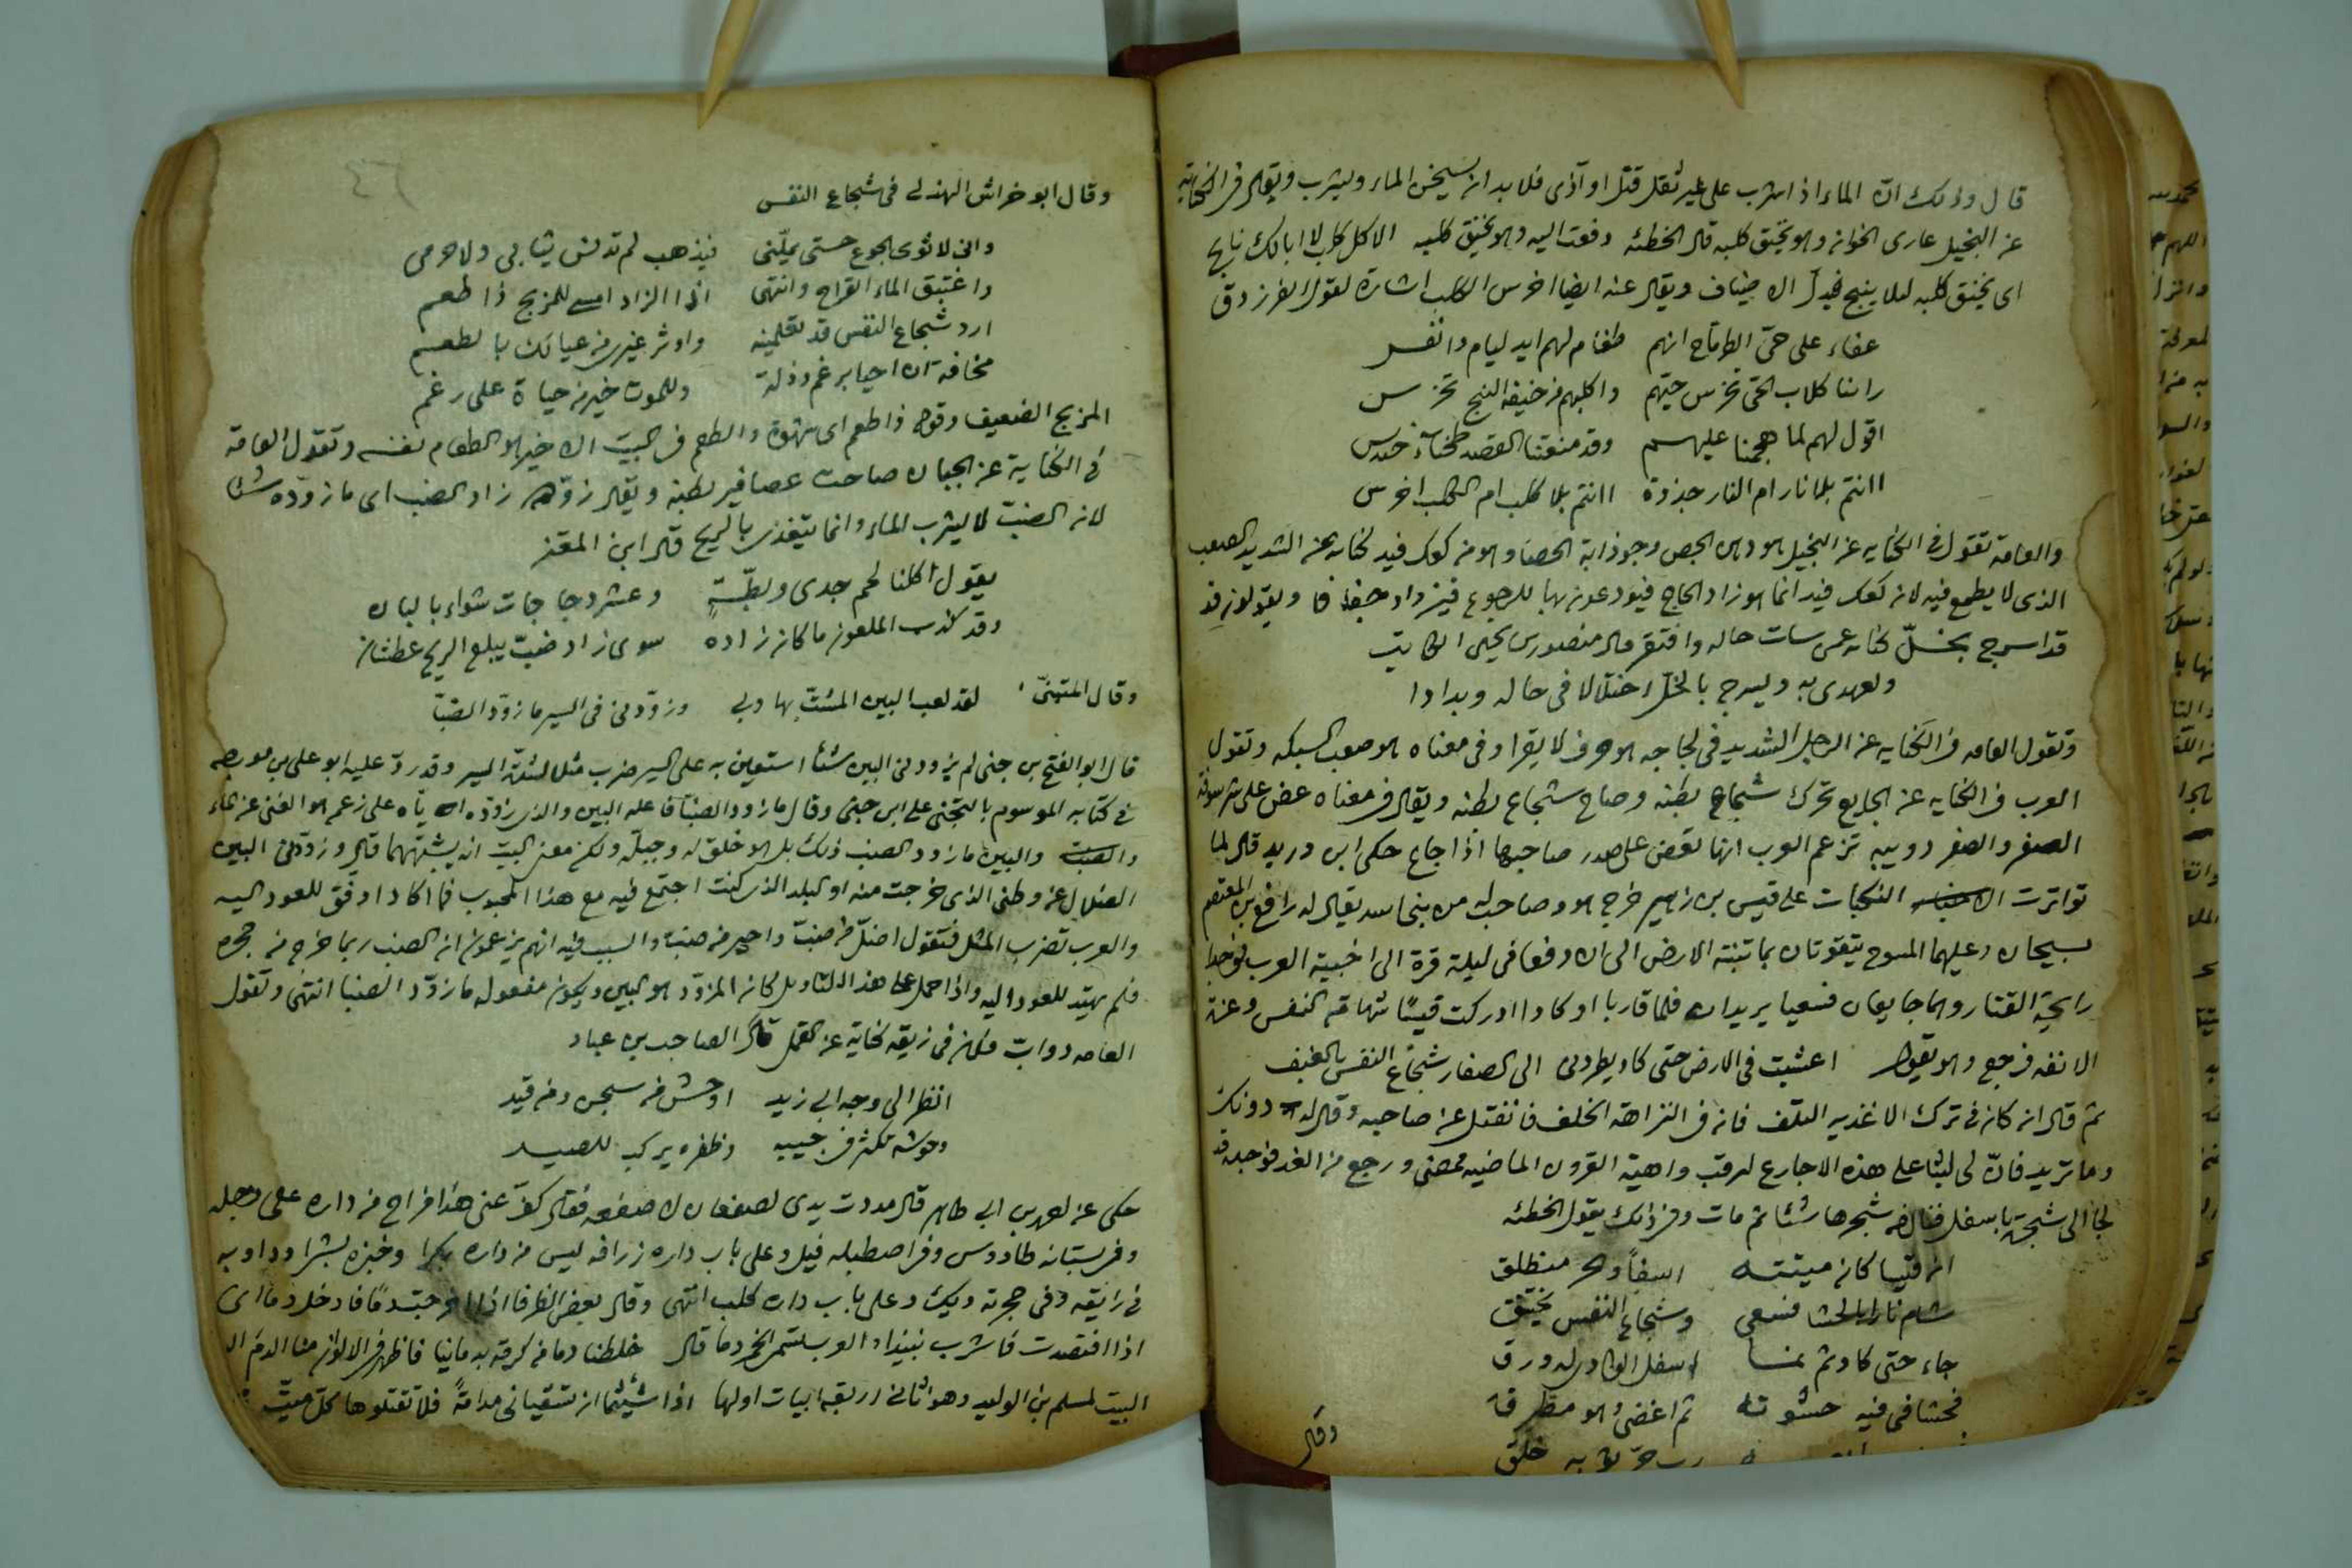 قال وذلك ان الماء اذا شرب على غير ثقل قتل او آذى فلا بد ان يسخن الماء ويشرب ويقال فى الكناية
عن البخيل عارى الخوان وهو يخنق كلبه قال الحطئه دفعت اليه وهو يخنق كلبه الا كل كلب لا ابالك نابح
اى يخنق كلبه لئلا ينبح فيدل الاضياف ويقال عنه ايضا اخرس الكلب اشارة لقول الفرزدق
على حى انهم طغام لهم ايد ليام وانفس
راينا كلاب الحى تحرس حيهم واكلبهم من خيفة النبح تخرس
اقول لهم لما هجمنا عليهم وقد منعتنا القصد
اانتم بلا نار ام النار جذوة اانتم بلا كلب ام الكلب اخرس
والعامة تقول فى الكنايه عن البخيل هو دهن الحص وجوذابة الحصا وهو من كعك فيد كنايه عن الشديد الصعب
الذى لا يطمع فيه لان كعك فيد انما هو زاد الحاج فيودعونه بها للرجوع فيزداد جفافا ويقولون فى
قد اسرج بخل كنايه عمن ساءت حاله وافتقر قال منصور بن يحيى الكاتب
ولعهدى به ويسرج بالخل اختلالا فى حاله وبدادا
وتقول العامه فى الكنايه عن الرجل الشديد فى لجاجه هو حرف لا يقرا وفى معناه هو صعب السبكه وتقول
العرب فى الكنايه عن الجايع تحرك شجاع بطنه وصاح شجاع بطنه ويقال فى معناه عض على شرسوفه
الصفر والصفر دويبه تزعم العرب انها تعض على صدر صاحبها اذا جاع حكى ابن دريد قال لما
تواترت النكبات على قيس بن زهير خرج هو وصاحب له من بنى اسد يقال له رافع بن المعتصم
يسيحان وعليهما المسوح يتقوتان بما تنبته الارض الى ان دفعا فى ليلة قرة الى اخبية العرب فوجدا
رايحة القتار وهما جايعان فسعيا يريدان فلما قاربا او كادا ادركت قيسا شهامة النفس وعزة
الانفه فرجع وهو يقول اعشبت فى الارض حتى كاد يطردنى الى الصغار شجاع النفس بالعنف
ثم قال ان كان فى ترك الاغذيه التلف فان فى النزاهة الخلف فانفتل عن صاحبه وقال له دونك
وما تريد فان لى لبثا على هذه الاجارع اترقب داهية القرون الماضيه فمضى ورجع من الغد فوجده قد
لجا الى شجرة باسفل فنال من شجرها شيئا ثم مات وفى ذلك يقول الحطئه
ان قيسا كان ميتته اسفا والحر منطلق
شام نارا بالحشا فسعى وشجاع النفس يختفق
جاء حتى كاد ثم اسفل الوادى له ورق
فحشا فى فيه حشوته ثم اغضى وهو مطرق
وقال
وقال ابو خراش الهذلى فى شجاع النفس
وانى لاثوى الجوع حتى يملنى فيذهب لم تدنس ثيابى ولا جرمى
واغتبق الماء القراح وانتهى اذا الزاد امسى للمزلج ذا طعم
ارد شجاع النفس قد تعلمينه واوثر غيرى من عيالك بالطعم
مخافة ان احيا برغم وذلة وللموت خير من حياة على رغم
المزلج الضعيف وقوله ذا طعم اى شهوة والطعم فى البيت الاخير هو الطعام نفسه وتقول العامة
فى الكناية عن الجبان صاحت عصافير بطنه ويقال زوده زاد الضب اى ما زوده شيئا
لان الضب لا يشرب الماء وانما يتغذى بالريح قال ابن المعتز
يقول اكلنا لحم جدى وبطة وعشر دجاجات شواء بالبان
وقد كذب الملعون ما كان زاده سوى زاد ضب يبلع الريح عطشان
وقال المتنبى لقد لعب البين المشت بها وبى وزودنى فى السير ما زود الضبا
قال ابو الفتح بن جنى لم يزودنى البين شيئا استعين به على السير ضرب مثلا لشدة السير وقد رد عليه ابو على بن فورجه
فى كتابه الموسوم بالتجنى على ابن جنى وقال ما زود الضبا فاعله البين والذى زوده اياه على زعمه هو الغنى عن الماء
والبين ما زود الضب ذلك بل هو خلق له وجبلة ولكن معنى البيت انه يشبههما قال وزودنى البين
الضلال عن وطنى الذى خرجت منه او البلد الذى كنت اجتمع فيه مع هذا المحبوب فما اكاد اوفق للعود اليه
والعرب تضرب المثل فتقول اضل من ضب واحير من ضب والسبب فيه انهم يزعمون ان الضب ربما خرج من جحره
فلم يهتد للعود اليه واذا حمل على هذا التاويل كان المزود هو البين ويكون مفعوله ما زود الضبا انتهى وتقول
العامه دواب فلان فى زيقه كناية عن القمل قال الصاحب بن عباد
انظر الى وجه ابى زيد اوحش من سجن ومن قيد
وحوشه تكثر فى جيبه وظفره يركب للصيد
حكى عن بن ابى طاهر قال مددت يدى لصفعان لاصفعه فقال كف عنى هذا فراح من داره على رجله
وفى بستانه طاووس وفى اصطبله فيل وعلى باب داره زرافه ليس من داره يكرا وخبزه بشرا ودوابه
فى زيقه وفى حجرته ديك وعلى باب داره كلب انتهى وقال بعض الظرفا اذا اخرجت دما فادخل دما اى
اذا افتصدت فاشرب نبيذا والعرب تسمى الخمر دما قال خلطنا دما من كرمة بدمائنا فاظهر فى الالوان منا الدم الد
البيت لمسلم بن الوليد وهو ثانى اربعة ابيات اولها اذا شئتما ان تسقيانى مدامة فلا تقتلوها كل ميت